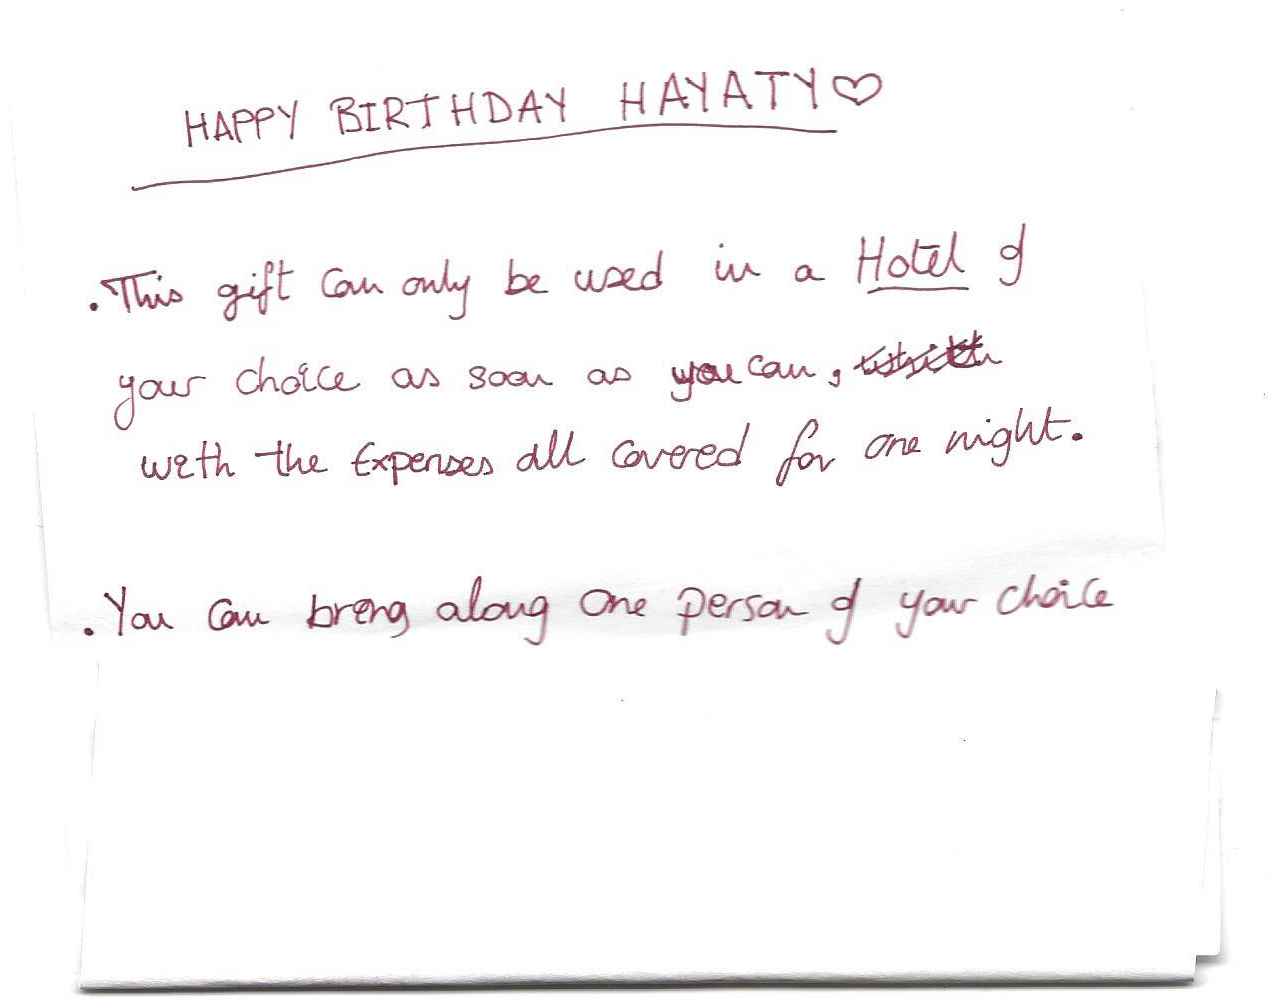 HAPPY BIRTHDAY HAYATY♡
.This gift can only be used in a Hotel of
your choice as soon as you can,
with the Expenses all covered for one night.
.You can bring along one person of your choice